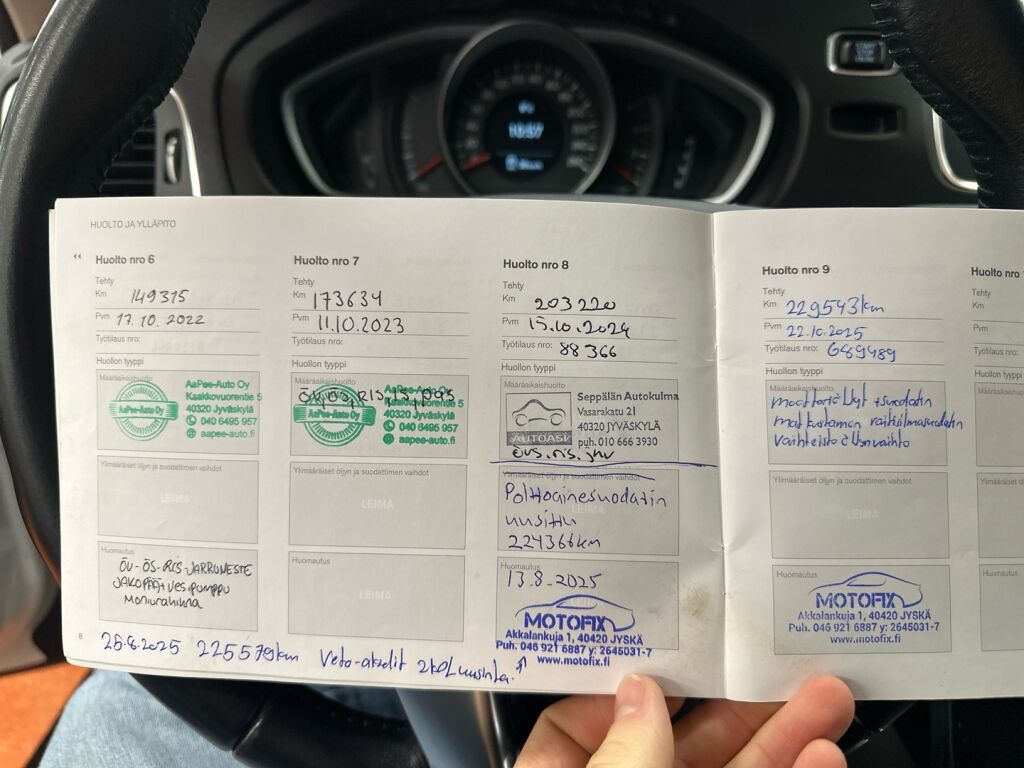 START
STOP
ENGINE
10:57
HUOLTO JA YLLÄPITO
Huolto nro 6
Tehty
Km 149315
Pvm 17.10.2022
Työtilaus nro:
Huollon tyyppi
Määräaikaishuolto
AaPee-Auto Oy
AaPee-Auto Oy
Kaakkovuorentie 5
40320 Jyväskylä
040 6495 957
aapee-auto.fi
Ylimääräiset öljyn ja suodattimen vaihdot
LEIMA
Huomautus
ÖV-ÖS-RIS-JARRUNESTE
JAKOPÄÄ+vesipumppu
Moniurahihna
8
Huolto nro 7
Tehty
Km 173634
Pvm 11.10.2023
Työtilaus nro:
Huollon tyyppi
Määräaikaishuolto
AaPee-Auto Oy
AaPee-Auto Oy
Kaakkovuorentie 5
40320 Jyväskylä
040 6495 957
aapee-auto.fi
Ylimääräiset öljyn ja suodattimen vaihdot
LEIMA
Huomautus
LEIMA
Huolto nro 8
Tehty
Km 203220
Pvm 15.10.2024
Työtilaus nro: 88366
Huollon tyyppi
Määräaikaishuolto
AUTOASI
Seppälän Autokulma
Vasarakatu 21
40320 JYVÄSKYLÄ
puh. 010 666 3930
övs.ris.jnv
Ylimääräiset öljyn ja suodattimen vaihdot
Polttoainesuodatin
uusittu
224366km
Huomautus
13.8-2025
MOTOFIX
Akkalankuja 1, 40420 JYSKÄ
Puh. 046 921 6887 y: 2645031-7
www.motofix.fi
28.8.2025 225579km Veto-akselit 2kpl uusinta.
Huolto nro 9
Tehty
Km 229543km
Pvm 22.10.2025
Työtilaus nro: 689489
Huollon tyyppi
Määräaikaishuolto
moottoriöljyt + suodatin
matkustamon raitisilmasuodatin
vaihteistoöljyn vaihto
Ylimääräiset öljyn ja suodattimen vaihdot
LEIMA
Huomautus
MOTOFIX
Akkalankuja 1, 40420 JYSKÄ
Puh. 046 921 6887 y: 2645031-7
www.motofix.fi
Huolto nro
Tehty
Km
Pvm
Työtilaus
Huollon
Määräa
Ylimäär
Huoma